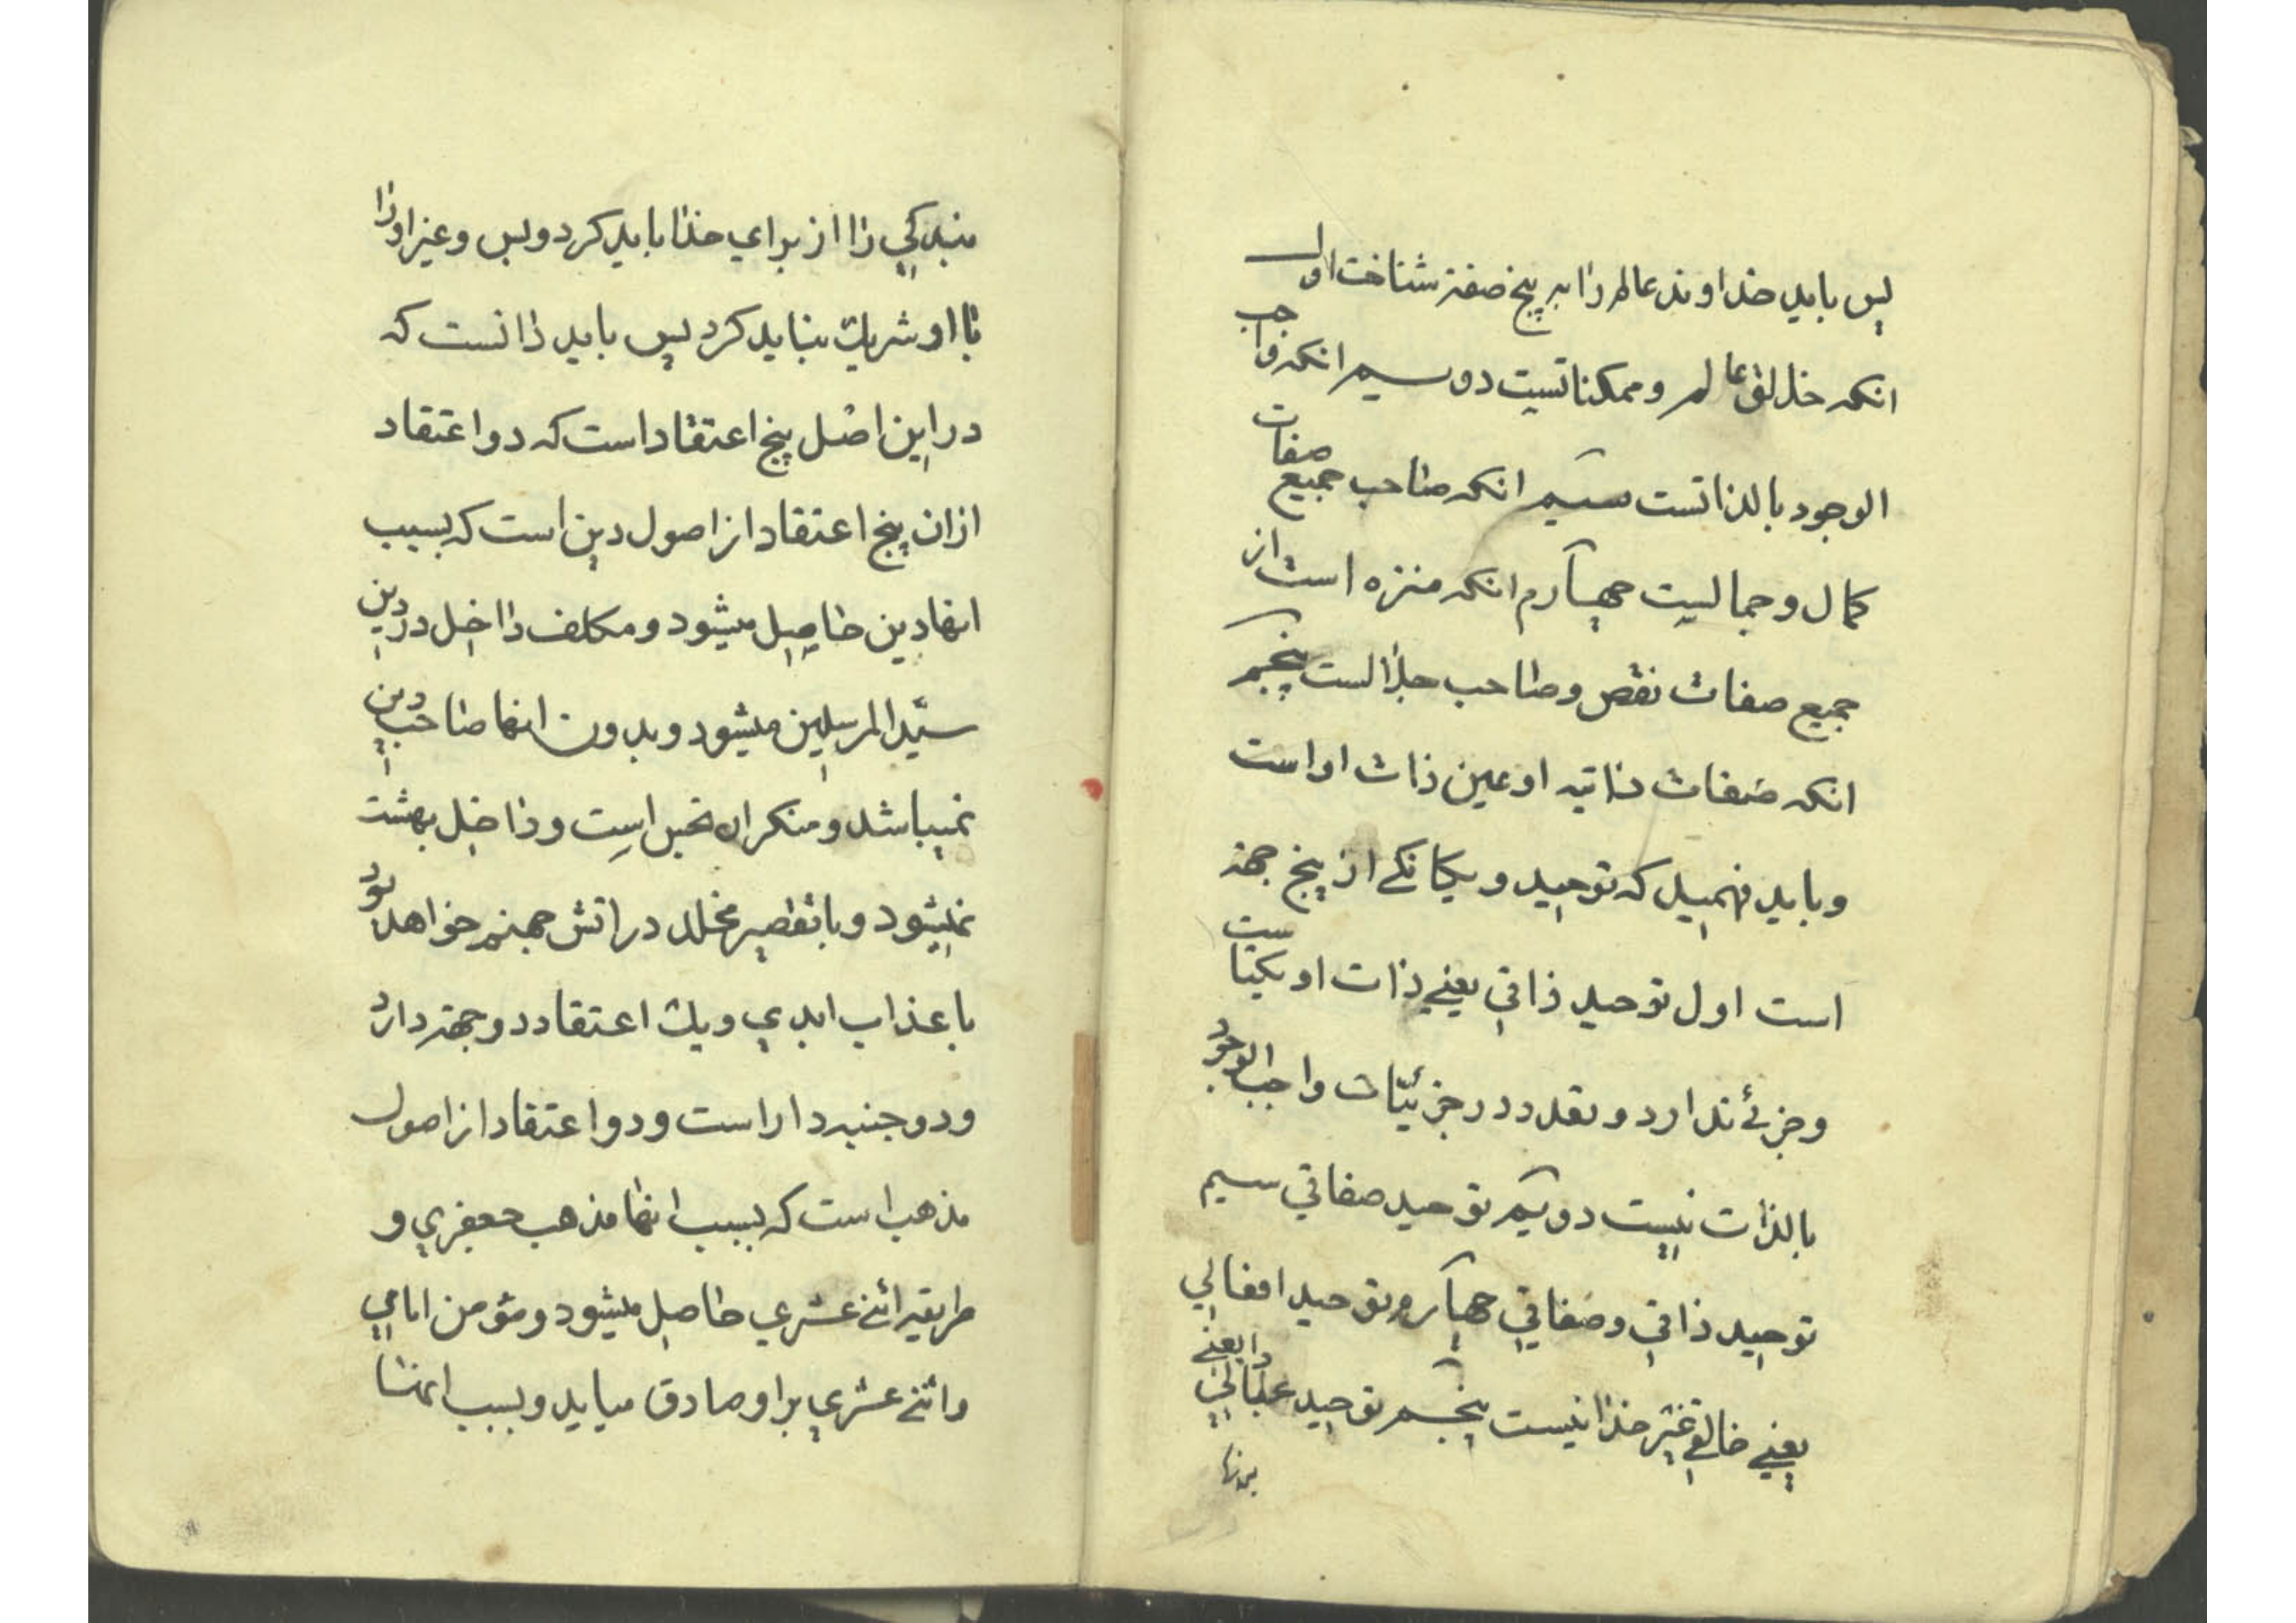 پس باید خداوند عالم را به پنج صفة شناخت اول
انکه خالق عالم و ممکناتست دوسیم انکه واجب
الوجود بالذاتست سیم انکه صاحب جمیع صفات
کمال و جمالیت چهارم انکه منزه است از
جمیع صفات نقص و صاحب جلالست پنجم
انکه صفات ذاتیه او عین ذات او است
و باید فهمید که توحید و یکانکے از پنج جهة
است اول توحید ذاتي یعنے ذات او یکتاست
و جزئے ندارد و تعدد در جزئیّات واجب الوجود
بالذات نیست دویم توحید صفاتي سیم
توحید ذاتي و صفاتي چهارم توحید افعالي
یعنے خالقے غیر خدا نیست پنجم توحید عباداتي یعنے
بندکي را از براي خدا باید کرد و بس و غیر او را
با او شریك نباید کرد پس باید دانست که
در این اصل پنج اعتقاد است که دو اعتقاد
از ان پنج اعتقاد از اصول دین است که بسبب
انها دین حاصل میشود و مکلف داخل در دین
سیّد المرسلین میشود و بدون انها صاحب دین
نمیباشد و منکر ان نجس است و داخل بهشت
نمیشود و با تقصیر مخلد در اتش جهنم خواهد بود
با عذاب ابدي و یك اعتقاد دو جهة دارد
و دو جنبه دارا است و دو اعتقاد از اصول
مذهب است که بسبب انها مذهب جعفري و
طریقه اثنے عشري حاصل میشود و مؤمن امامي
و اثنے عشري بر او صادق میاید و بسبب انها